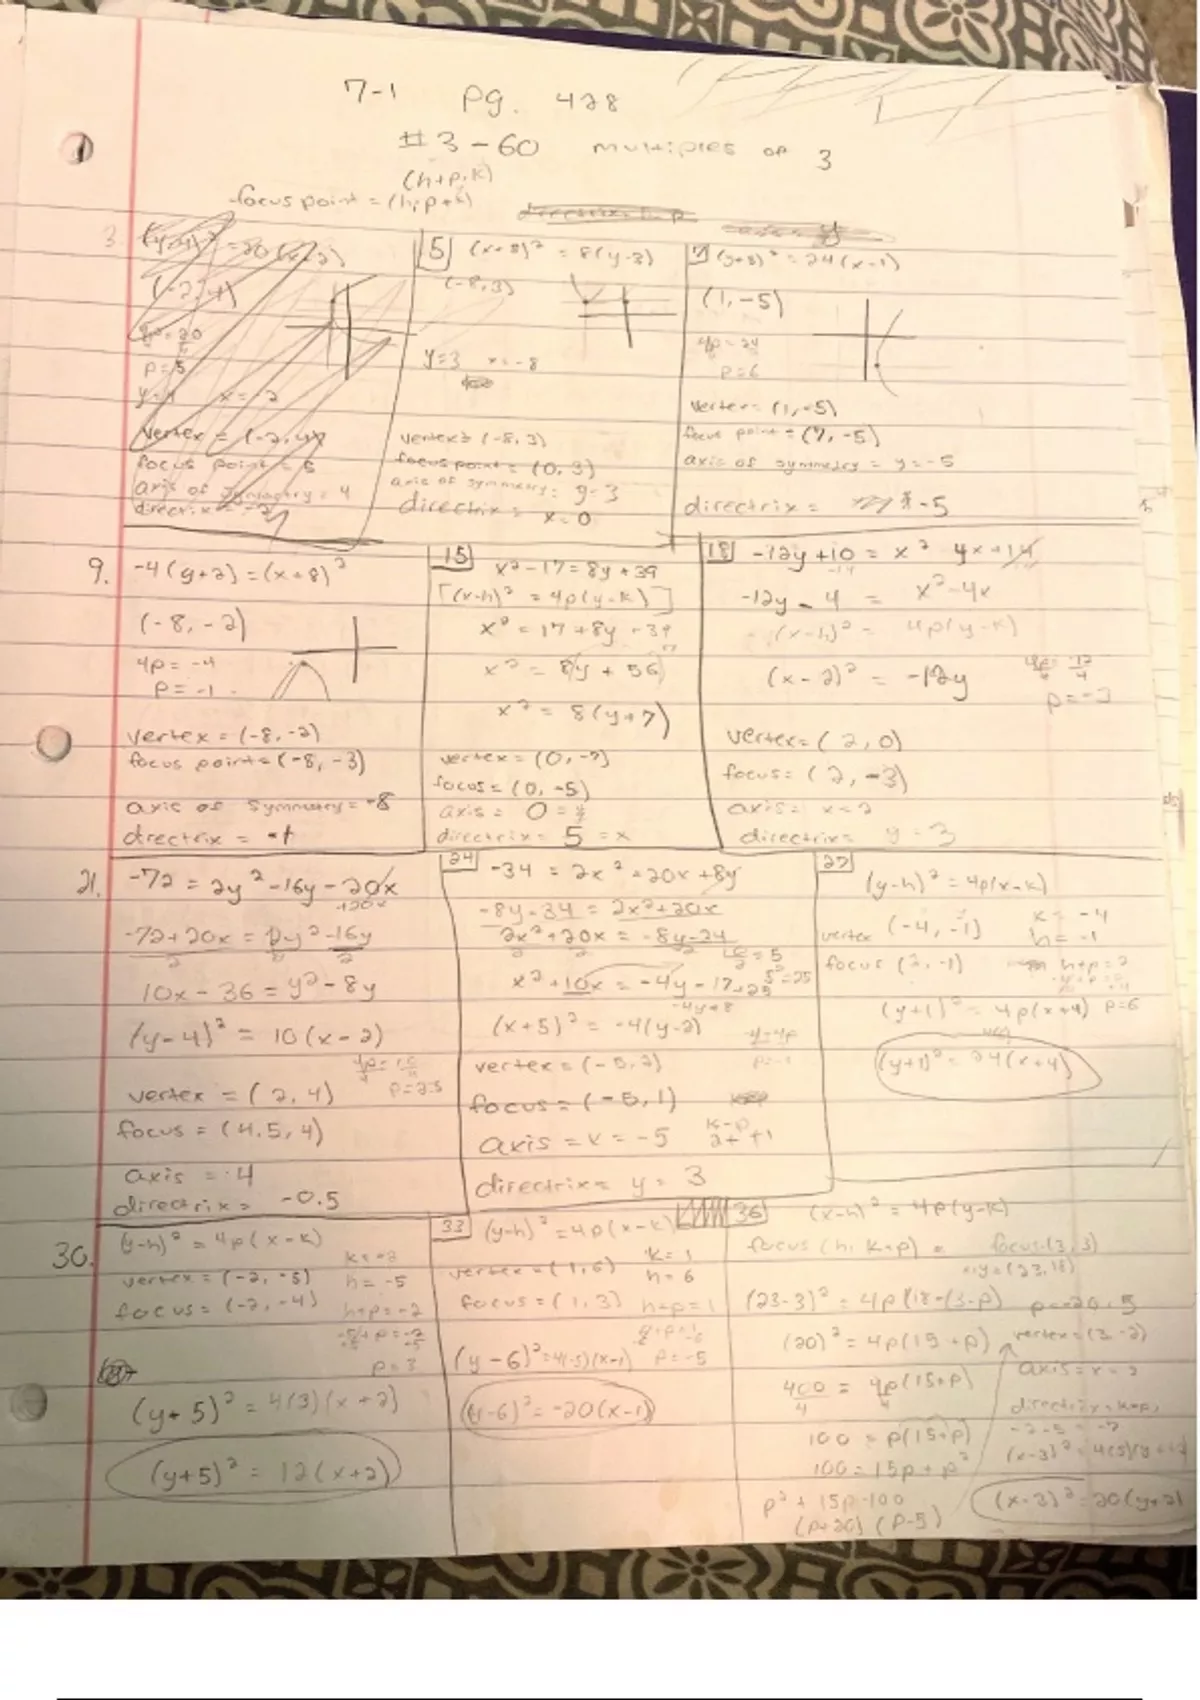 7-1 pg. 428
#3-60 multiples of 3
(h+p,k)
focus point = (h,p+k)
3.
(-2,4)
p=5
x=-2
vertex = (-2,4)
focus point = 5
axis of symmetry = 4
directrix = -2
5 (x+8)² = 8(y-3)
(-8,3)
y=3 x=-8
vertex = (-8,3)
focus point = (0,3)
axis of symmetry: y=3
directrix = x=0
7 (y+5)² = 24(x-1)
(1,-5)
4p = 24
p=6
vertex = (1,-5)
focus point = (7,-5)
axis of symmetry = y=-5
directrix = -5
9. -4(y+2) = (x+8)²
(-8,-2)
4p = -4
p = -1
vertex = (-8,-2)
focus point = (-8,-3)
axis of symmetry = -8
directrix = -1
15
x²-17=8y+39
[(x-h)² = 4p(y-k)]
x² = 17+8y+39
x² = 8y+56
x² = 8(y+7)
vertex = (0,-7)
focus = (0,-5)
axis = 0 =
directrix = 5 = x
18 -12y+10 = x² 4x+14
-14
-12y-4 = x²-4x
(x-h)² = 4p(y-k)
(x-2)² = -12y
p=-3
vertex = (2,0)
focus = (2,-3)
axis = x=2
directrix = y=3
21. -72 = 2y²-16y-20x
+20x
-72+20x = 2y²-16y
10x-36 = y²-8y
(y-4)² = 10(x-2)
p=2.5
vertex = (2,4)
focus = (4.5,4)
axis = 4
directrix = -0.5
24 -34 = 2x²+20x+8y
-8y-34 = 2x²+20x
2x²+20x = -8y-34
x²+10x = -4y-17+25 5²=25
-4y+8
(x+5)² = -4(y-2)
vertex = (-5,2)
focus = (-5,1)
axis = x = -5
directrix = y = 3
27
(y-h)² = 4p(x-k)
vertex (-4,-1) k=-4
h=-1
focus (2,-1) h+p=2
(y+1)² = 4p(x+4) p=6
(y+1)² = 24(x+4)
30. (y-h)² = 4p(x-k)
k=-2
vertex = (-2,-5) h=-5
focus = (-2,-4) h+p=-2
p=3
(y+5)² = 4(3)(x+2)
(y+5)² = 12(x+2)
33 (y-h)² = 4p(x-k)
k=1
vertex = (1,6) h=6
focus = (1,3) h+p=1
(y-6)²=4(-5)(x-1) p=-5
(y-6)² = -20(x-1)
36 (x-h)² = 4p(y-k)
focus (h,k+p) = focus(3,3)
x,y=(23,18)
(23-3)² = 4p(18-(3-p) p=-20,5
(20)² = 4p(15+p) vertex=(3,-2)
400 = 4p(15+p)
100 = p(15+p)
-2-5=-7
100 = 15p+p²
p²+15p-100
(p+20)(p-5)
(x-3)² = 20(y+2)